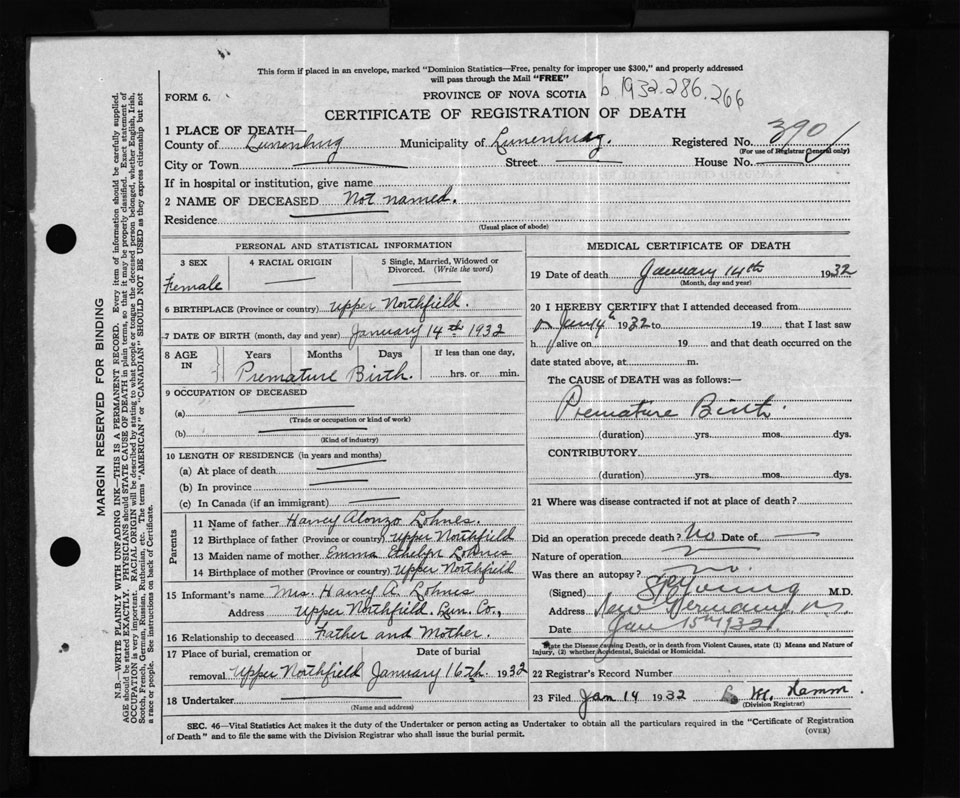 This form if placed in an envelope, marked "Dominion Statistics—Free, penalty for improper use $300," and properly addressed
will pass through the Mail "FREE"
FORM 6.
PROVINCE OF NOVA SCOTIA
b 1932.286.266
CERTIFICATE OF REGISTRATION OF DEATH
1 PLACE OF DEATH—
County of Lunenburg Municipality of Lunenburg. Registered No. 390
(For use of Registrar General only)
City or Town Street House No.
If in hospital or institution, give name
2 NAME OF DECEASED Not named.
Residence
(Usual place of abode)
PERSONAL AND STATISTICAL INFORMATION
3 SEX 4 RACIAL ORIGIN 5 Single, Married, Widowed or
Divorced. (Write the word)
Female
6 BIRTHPLACE (Province or country) Upper Northfield.
7 DATE OF BIRTH (month, day and year) January 14th 1932
8 AGE IN Years Months Days If less than one day,
Premature Birth. hrs. or min.
9 OCCUPATION OF DECEASED
(a)
(Trade or occupation or kind of work)
(b)
(Kind of industry)
10 LENGTH OF RESIDENCE (in years and months)
(a) At place of death
(b) In province
(c) In Canada (if an immigrant)
Parents
11 Name of father Harvey Alonzo Lohnes.
12 Birthplace of father (Province or country) Upper Northfield
13 Maiden name of mother Emma Ethelyn Lohnes
14 Birthplace of mother (Province or country) Upper Northfield
15 Informant's name Mrs. Harvey A. Lohnes
Address Upper Northfield Lun. Co.,
16 Relationship to deceased Father and Mother.
17 Place of burial, cremation or Date of burial
removal Upper Northfield January 16th. 1932
18 Undertaker
(Name and address)
MEDICAL CERTIFICATE OF DEATH
19 Date of death January 14th 1932
(Month, day and year)
20 I HEREBY CERTIFY that I attended deceased from
Jan 14th 1932 to 19 that I last saw
h alive on 19 and that death occurred on the
date stated above, at m.
The CAUSE of DEATH was as follows:—
Premature Birth.
(duration) yrs. mos. dys.
CONTRIBUTORY
(duration) yrs. mos. dys.
21 Where was disease contracted if not at place of death?
Did an operation precede death? No Date of
Nature of operation
Was there an autopsy? no
(Signed) Young M.D.
Address New Germany NS
Date Jan 15th 1932
State the Disease causing Death, or in death from Violent Causes, state (1) Means and Nature of
Injury, (2) whether Accidental, Suicidal or Homicidal.
22 Registrar's Record Number
23 Filed Jan 14 1932
(Division Registrar)
SEC. 46—Vital Statistics Act makes it the duty of the Undertaker or person acting as Undertaker to obtain all the particulars required in the "Certificate of Registration
of Death" and to file the same with the Division Registrar who shall issue the burial permit.
(OVER)
MARGIN RESERVED FOR BINDING
N.B.—WRITE PLAINLY WITH UNFADING INK—THIS IS A PERMANENT RECORD. Every item of information should be carefully supplied.
AGE should be stated EXACTLY. PHYSICIANS should STATE CAUSE OF DEATH in plain terms, so that it may be properly classified. Exact statement of
OCCUPATION is very important. RACIAL ORIGIN will be described by stating to what people or tongue the deceased person belonged, whether English, Irish,
Scotch, French, German, Russian, Ruthenian, etc. The terms "AMERICAN" or "CANADIAN" SHOULD NOT BE USED as they express citizenship but not
a race or people. See instructions on back of Certificate.